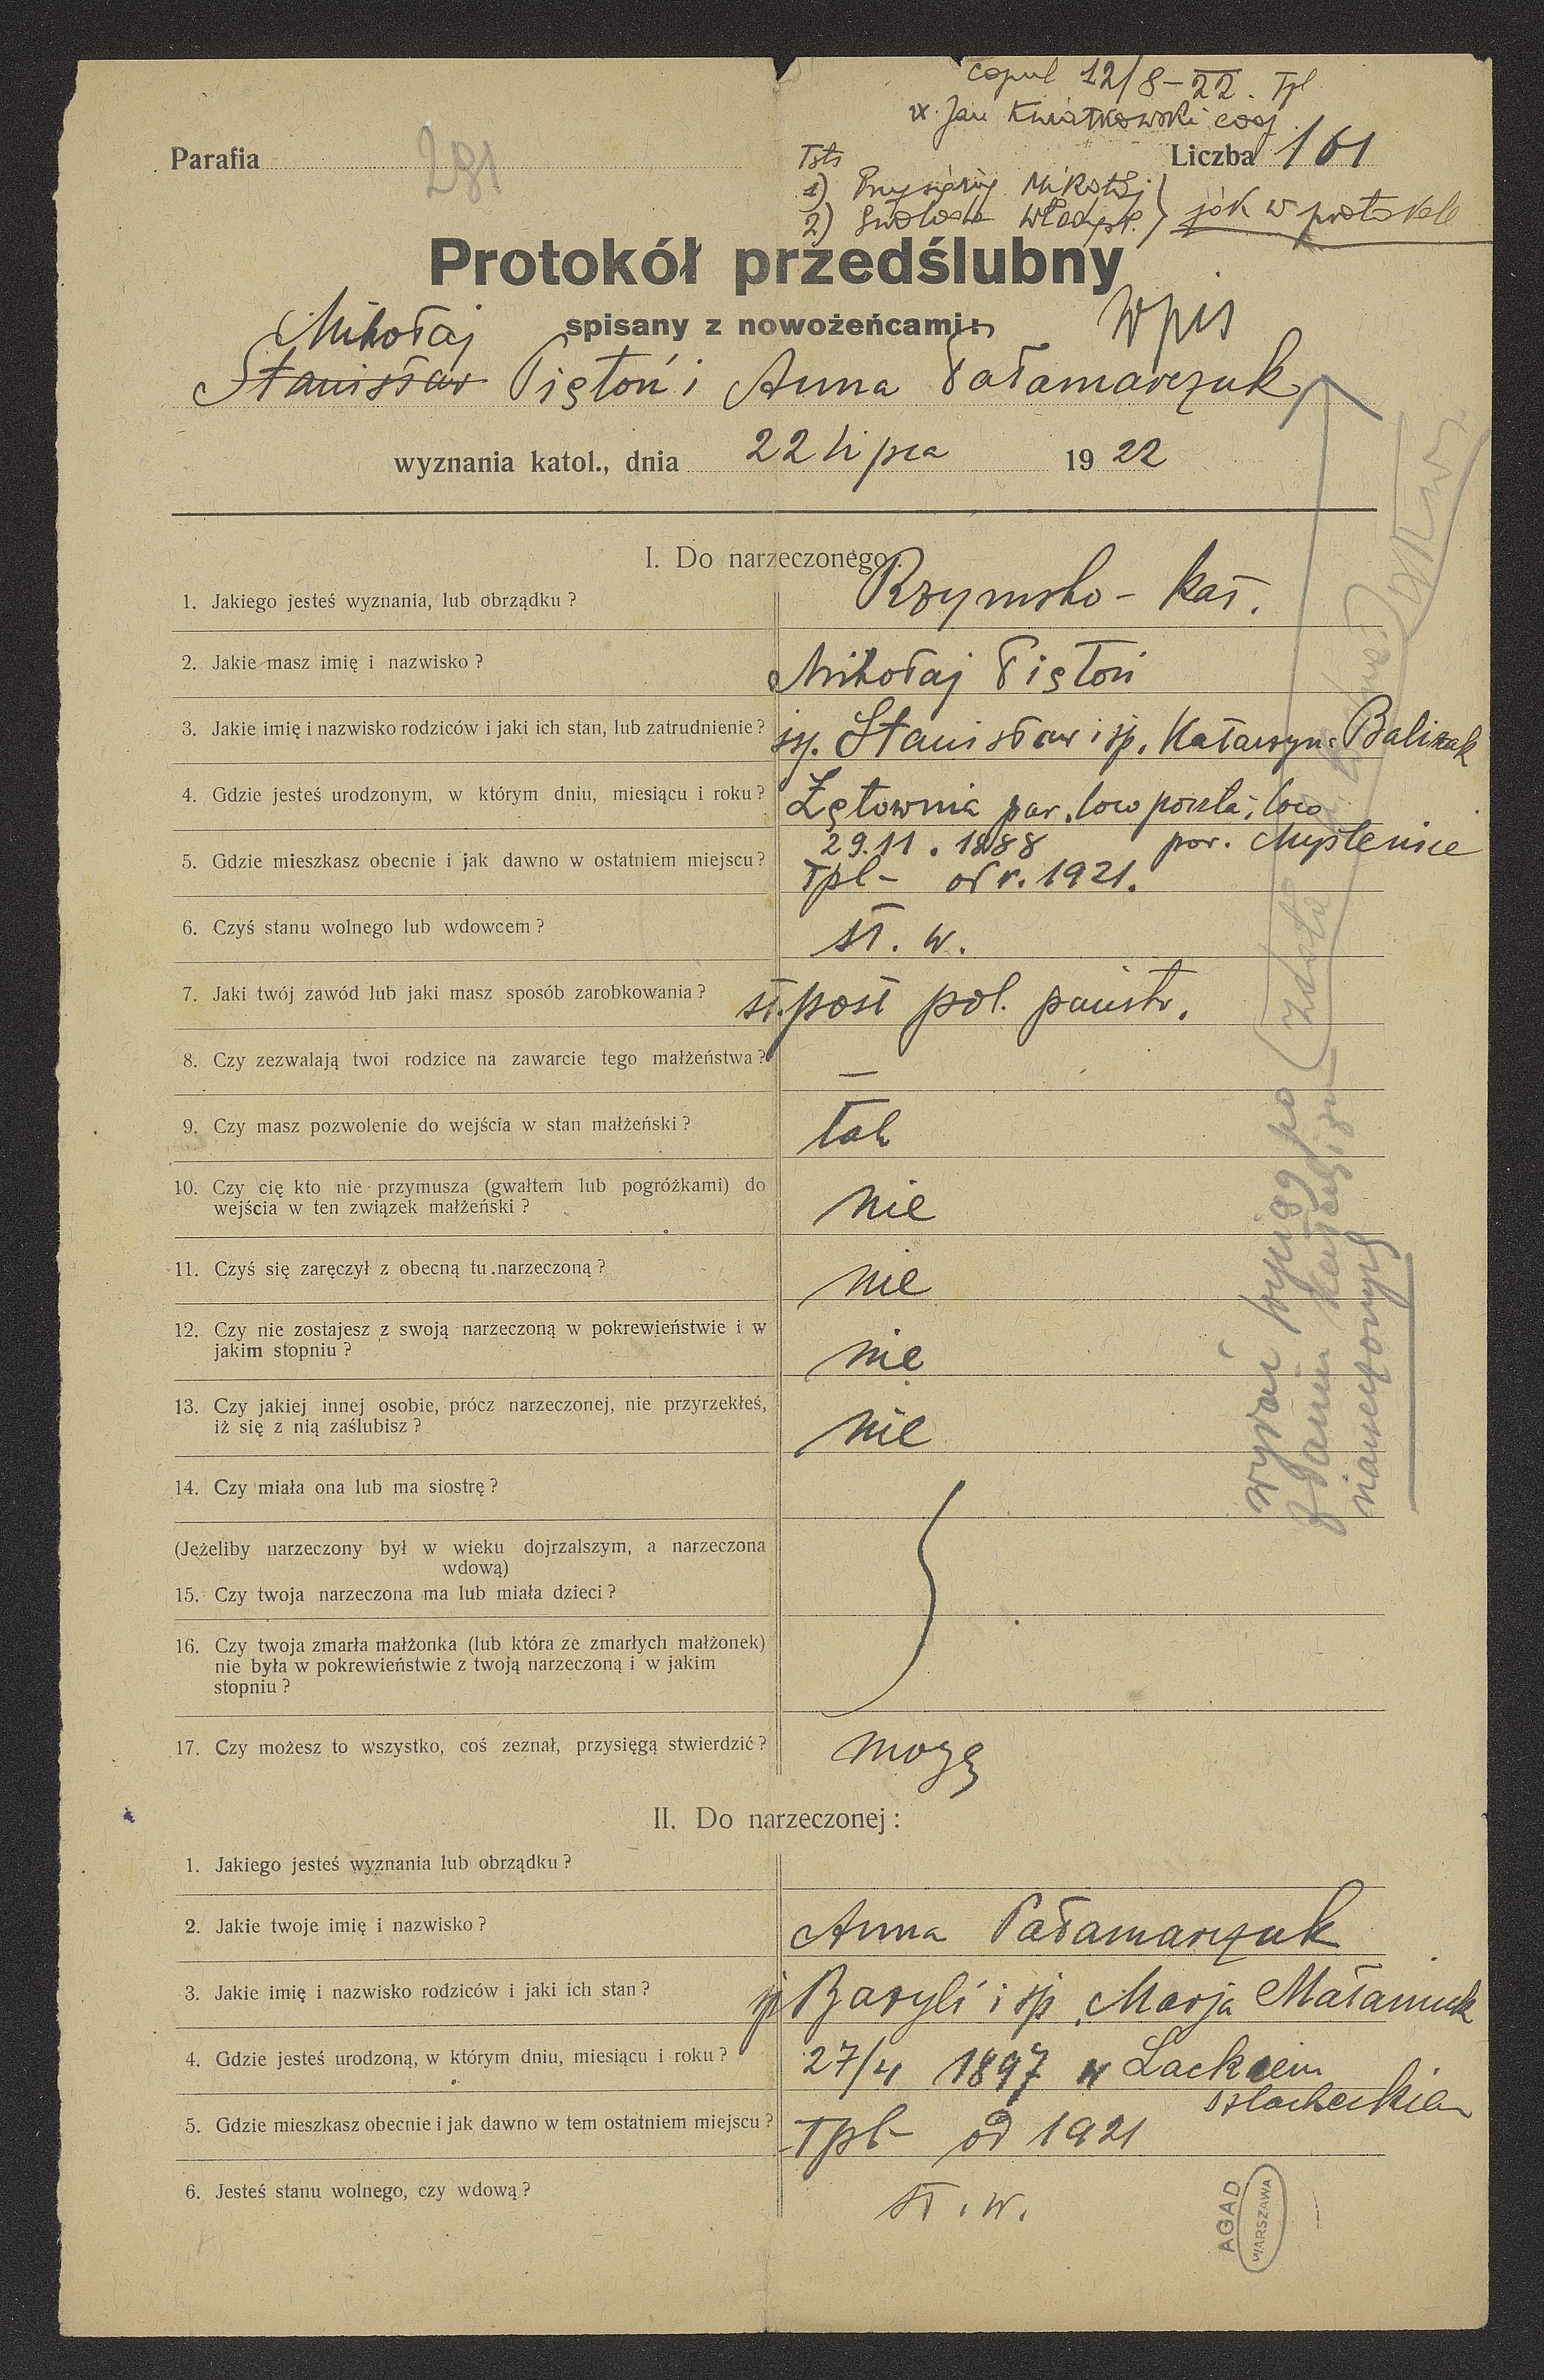 copul 12/8-22. Tpl
x. Jan Kwiatkowski cooj.
Parafia 281
Liczba 161
Tsts
1) Mikołaj
2) Władysł. } jak w protokole
Protokół przedślubny
spisany z nowożeńcami:
Wpis
Mikołaj
Stanisław Piętoń i Anna Pałamarczuk
wyznania katol., dnia 22 lipca 1922
I. Do narzeczonego:
1. Jakiego jesteś wyznania, lub obrządku? Rzymsko-kat.
2. Jakie masz imię i nazwisko? Mikołaj Piętoń
3. Jakie imię i nazwisko rodziców i jaki ich stan, lub zatrudnienie? śp. Stanisław i śp. Katarzyna Baliczak
4. Gdzie jesteś urodzonym, w którym dniu, miesiącu i roku? Zętownia par. loco poczta, loco
29.11.1888 pow. Myślenice
5. Gdzie mieszkasz obecnie i jak dawno w ostatniem miejscu? Tpl- od r. 1921.
6. Czyś stanu wolnego lub wdowcem? st. w.
7. Jaki twój zawód lub jaki masz sposób zarobkowania? st. post pol. państw.
8. Czy zezwalają twoi rodzice na zawarcie tego małżeństwa? —
9. Czy masz pozwolenie do wejścia w stan małżeński? tak
10. Czy cię kto nie przymusza (gwałtem lub pogróżkami) do
wejścia w ten związek małżeński? nie
11. Czyś się zaręczył z obecną tu narzeczoną? nie
12. Czy nie zostajesz z swoją narzeczoną w pokrewieństwie i w
jakim stopniu? nie
13. Czy jakiej innej osobie, prócz narzeczonej, nie przyrzekłeś,
iż się z nią zaślubisz? nie
14. Czy miała ona lub ma siostrę?
(Jeżeliby narzeczony był w wieku dojrzalszym, a narzeczona
wdową)
15. Czy twoja narzeczona ma lub miała dzieci?
16. Czy twoja zmarła małżonka (lub która ze zmarłych małżonek)
nie była w pokrewieństwie z twoją narzeczoną i w jakim
stopniu?
17. Czy możesz to wszystko, coś zeznał, przysięgą stwierdzić? mogę
II. Do narzeczonej:
1. Jakiego jesteś wyznania lub obrządku?
2. Jakie twoje imię i nazwisko? Anna Pałamarczuk
3. Jakie imię i nazwisko rodziców i jaki ich stan? śp Bazyli i śp. Marja Małaniuk
4. Gdzie jesteś urodzoną, w którym dniu, miesiącu i roku? 27/4 1897 w Lackiem
szlacheckiem
5. Gdzie mieszkasz obecnie i jak dawno w tem ostatniem miejscu? Tpl- od 1921
6. Jesteś stanu wolnego, czy wdową? st. w.
AGAD
WARSZAWA